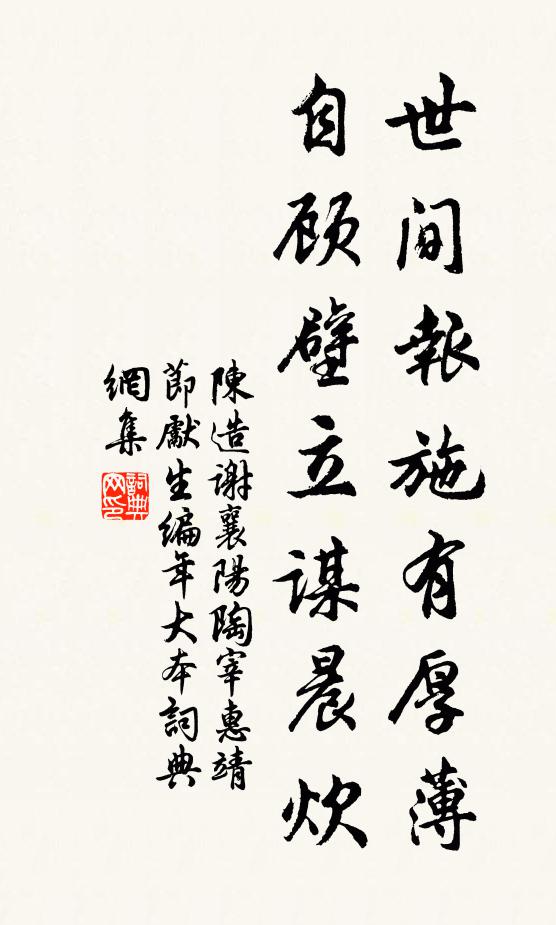 世間報施有厚薄
自顾壁立謀晨炊
陳造谢襄陽陶宰惠靖
節獻生编年大本詞典
網集
詞典网印